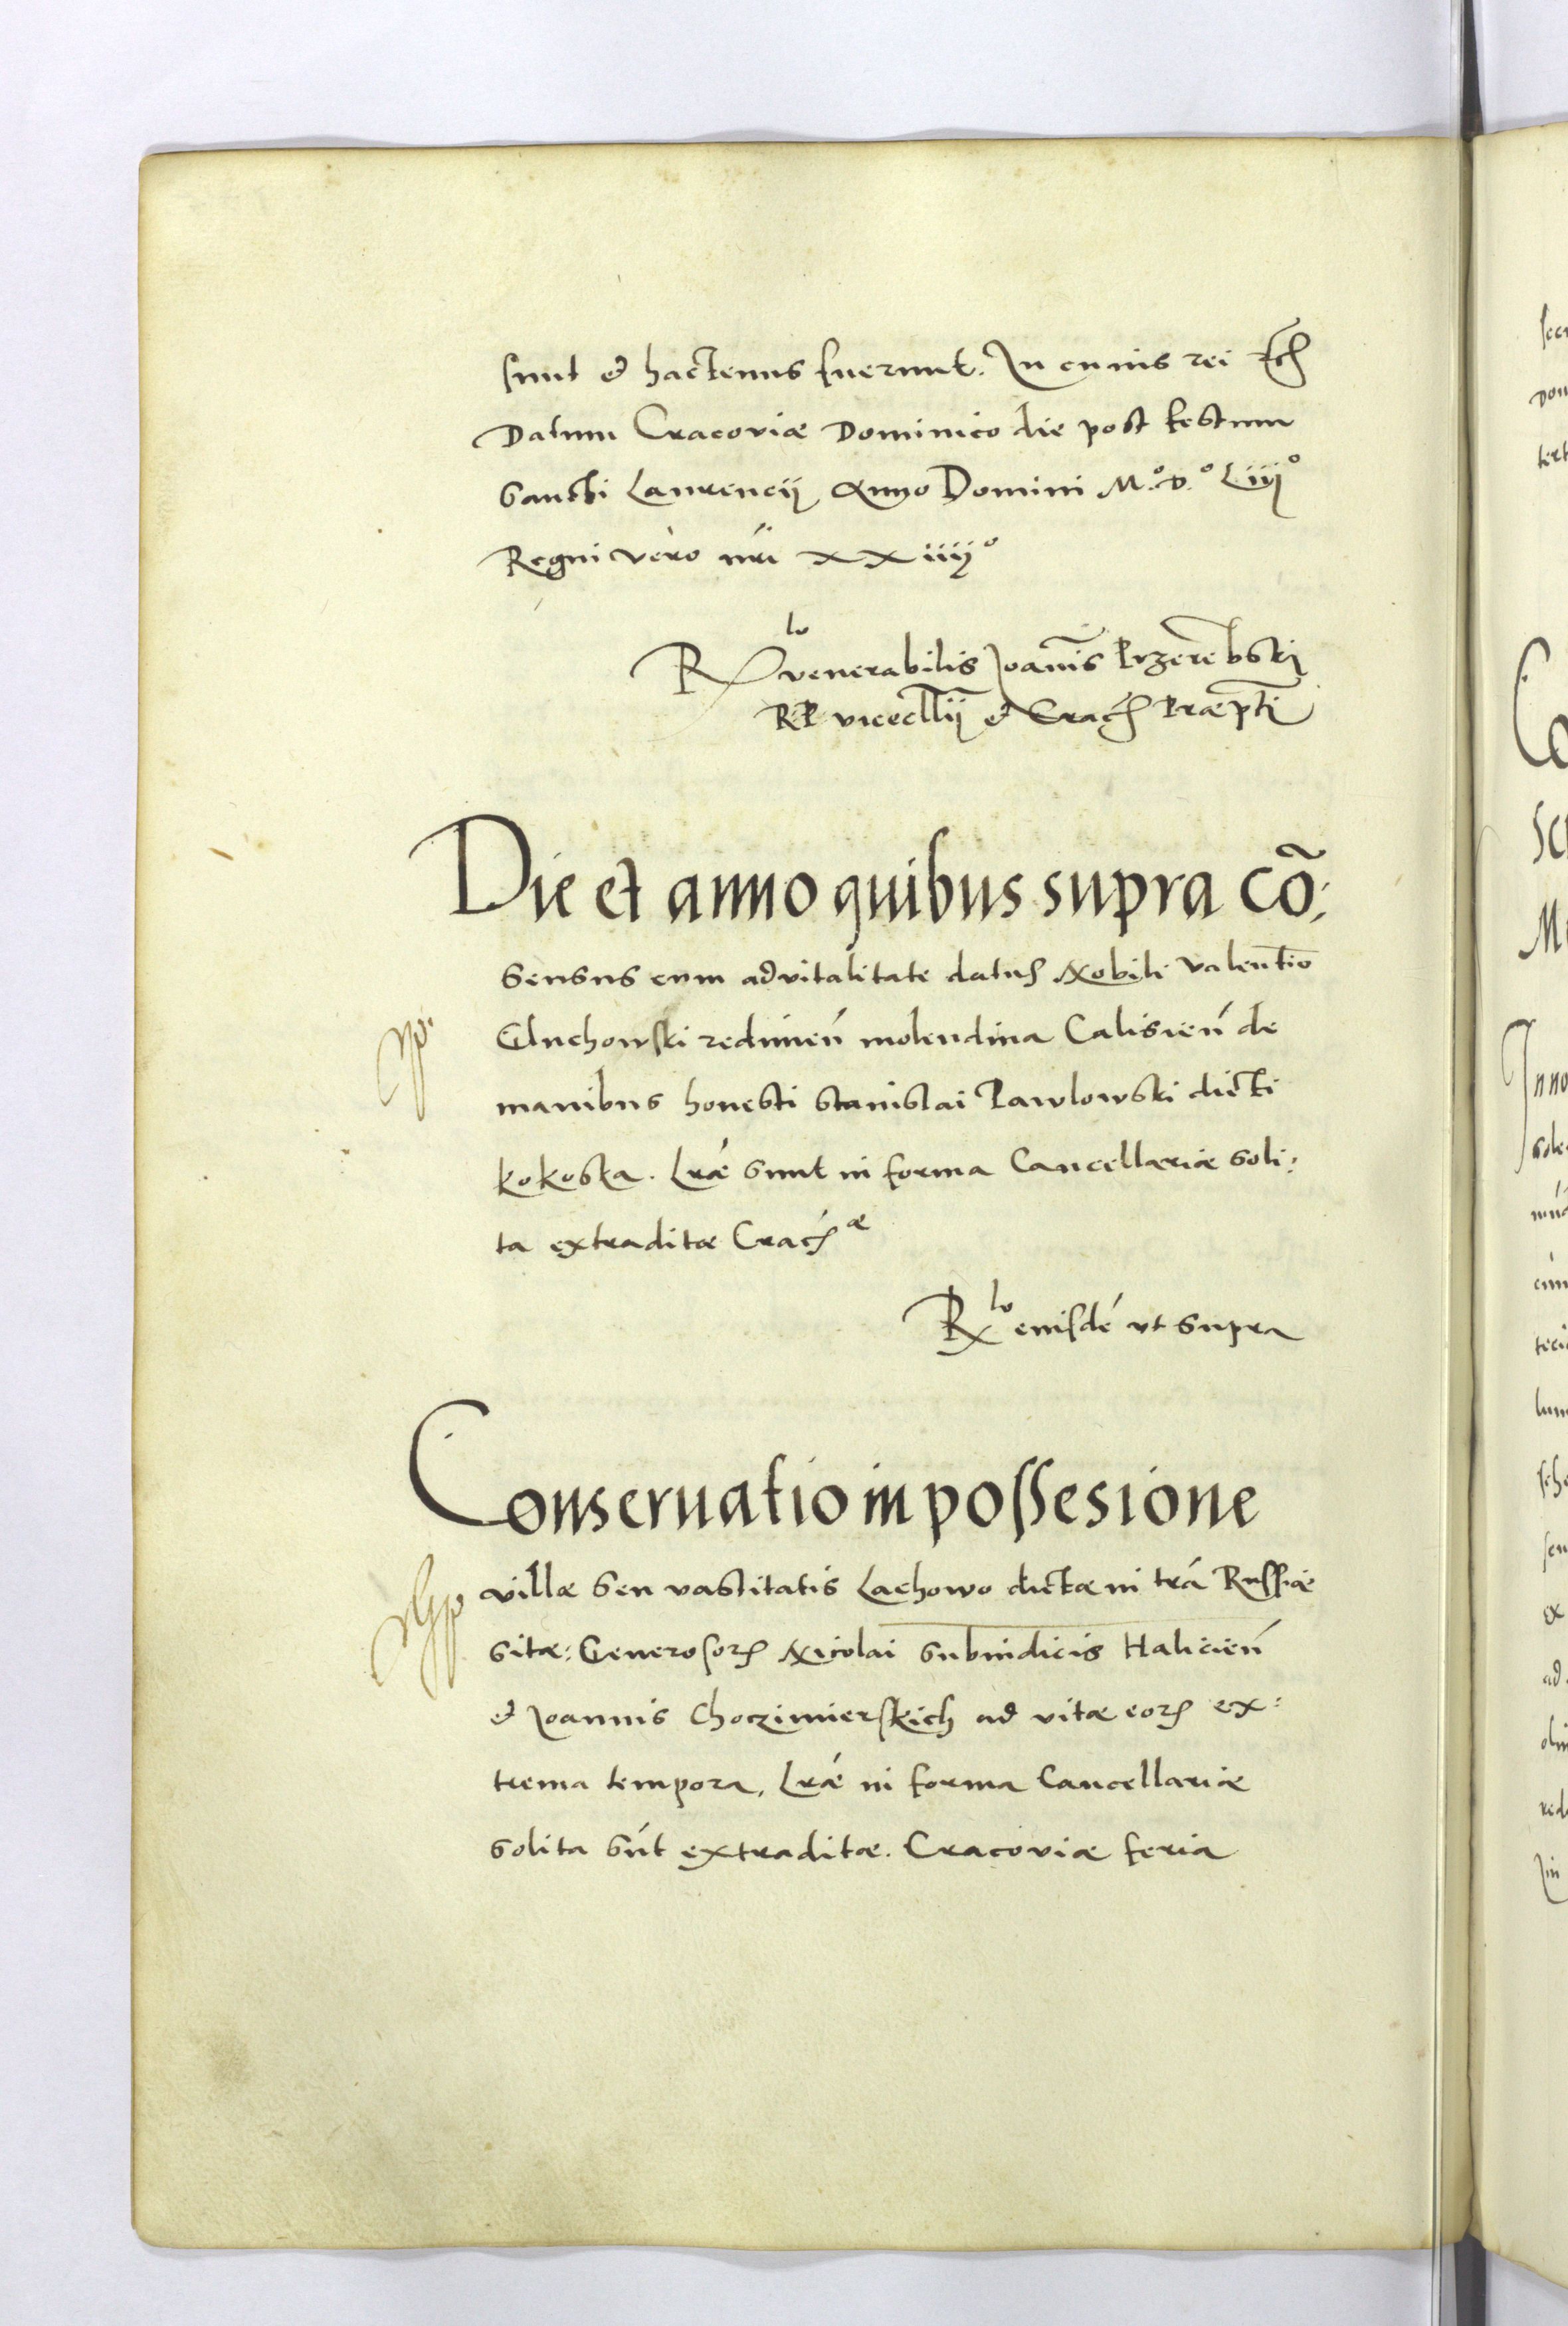 sunt et hactenus fuerunt. In cuius rei Etc
Datum Cracoviæ Dominico die post festum
Sancti Laurencij Anno Domini M.° D.° Liiij°
Regni vero nri xxiiij°
Rlo venerabilis Joanis Przerebski
RP vicecllij et Crac Præpti
Die et anno quibus supra cõ:
sensus cum advitalitate datus Nobili Valentio
Gluchowski redimen molendina Calisien de
manibus honesti Stanislai Pawlowski dicti
kokoska. Lræ sunt in forma Cancellariæ soli:
ta extraditæ Cracæ
Rlo eiusdé vt supra
Conseruatio in possesione
villæ seu vastitatis Lachowo dictæ in trá Russiæ
sitæ: Generosor Nicolai Subiudicis Halicien
et Joannis Choczimierskich ad vitæ eor ex:
trema tempora, Lræ in forma Cancellariæ
solita sút extraditæ. Cracoviæ feria